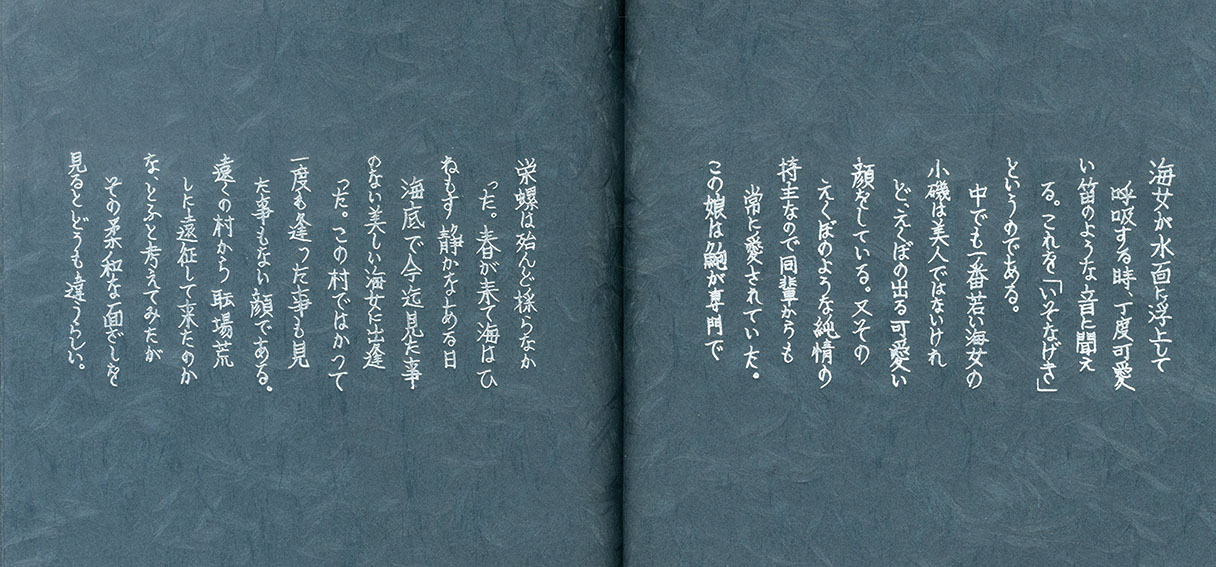 海女が水面に浮上して
呼吸する時、丁度可愛
い笛のような音に聞え
る。これを「いそなげき」
というのである。
中でも一番若い海女の
小磯は美人ではないけれ
ど、えくぼの出る可愛い
顔をしている。又その
えくぼのような純情の
持主なので同輩からも
常に愛されていた。
この娘は鮑が専門で
栄螺は殆んど採らなか
った。春が来て海はひ
ねもす静かなある日
海底で今迄見た事
のない美しい海女に出逢
った。この村ではかつて
一度も逢った事も見
た事もない顔である。
遠くの村から転場荒
しに遠征して来たのか
な、とふと考えてみたが
その柔和な面ざしを
見るとどうも違うらしい。